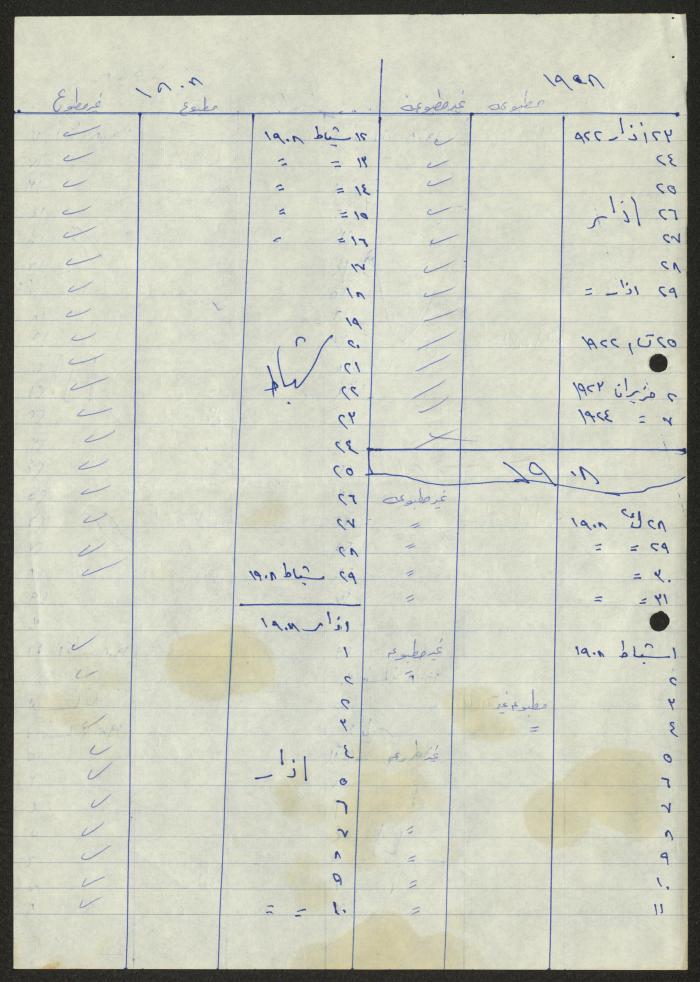 ١٩٠٨
مطبوعه غير مطبوعه
٢٣ اذار ٩٢٢
٢٤
٢٥
٢٦ اذار
٢٧
٢٨
٢٩ اذار =
٢٥ ت١ ١٩٢٢
٢ حزيران ١٩٢٣
٧ = ١٩٢٤
١٩٠٨
غير مطبوعه
٢٨ ك٢ ١٩٠٨ =
٢٩ = = =
٣٠ = =
٣١ = = =
١ شباط ١٩٠٨ غير مطبوعه
٢ =
٣ مطبوعه
٤ =
٥ غير مطبوعه
٦
٧
٨ =
٩ =
١٠ =
١١ =
١٩٠٨
مطبوع غير مطبوع
١٢ شباط ١٩٠٨
١٣ = =
١٤ = =
١٥ = =
١٦ = =
١٧
١٨
١٩
٢٠
شباط
٢١
٢٢
٢٣
٢٤
٢٥
٢٦
٢٧
٢٨
٢٩ شباط ١٩٠٨
اذار ١٩٠٨
١
٢
٢
٣
٤
اذار
٥
٦
٧
٨
٩
١٠ = =